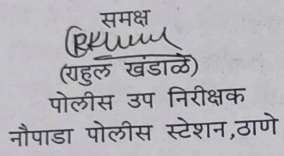 समक्ष
(राहुल खंडाळे)
पोलीस उप निरीक्षक
नौपाडा पोलीस स्टेशन,ठाणे